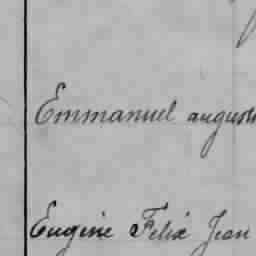 Emmanuel august
Eugène Félix Jean